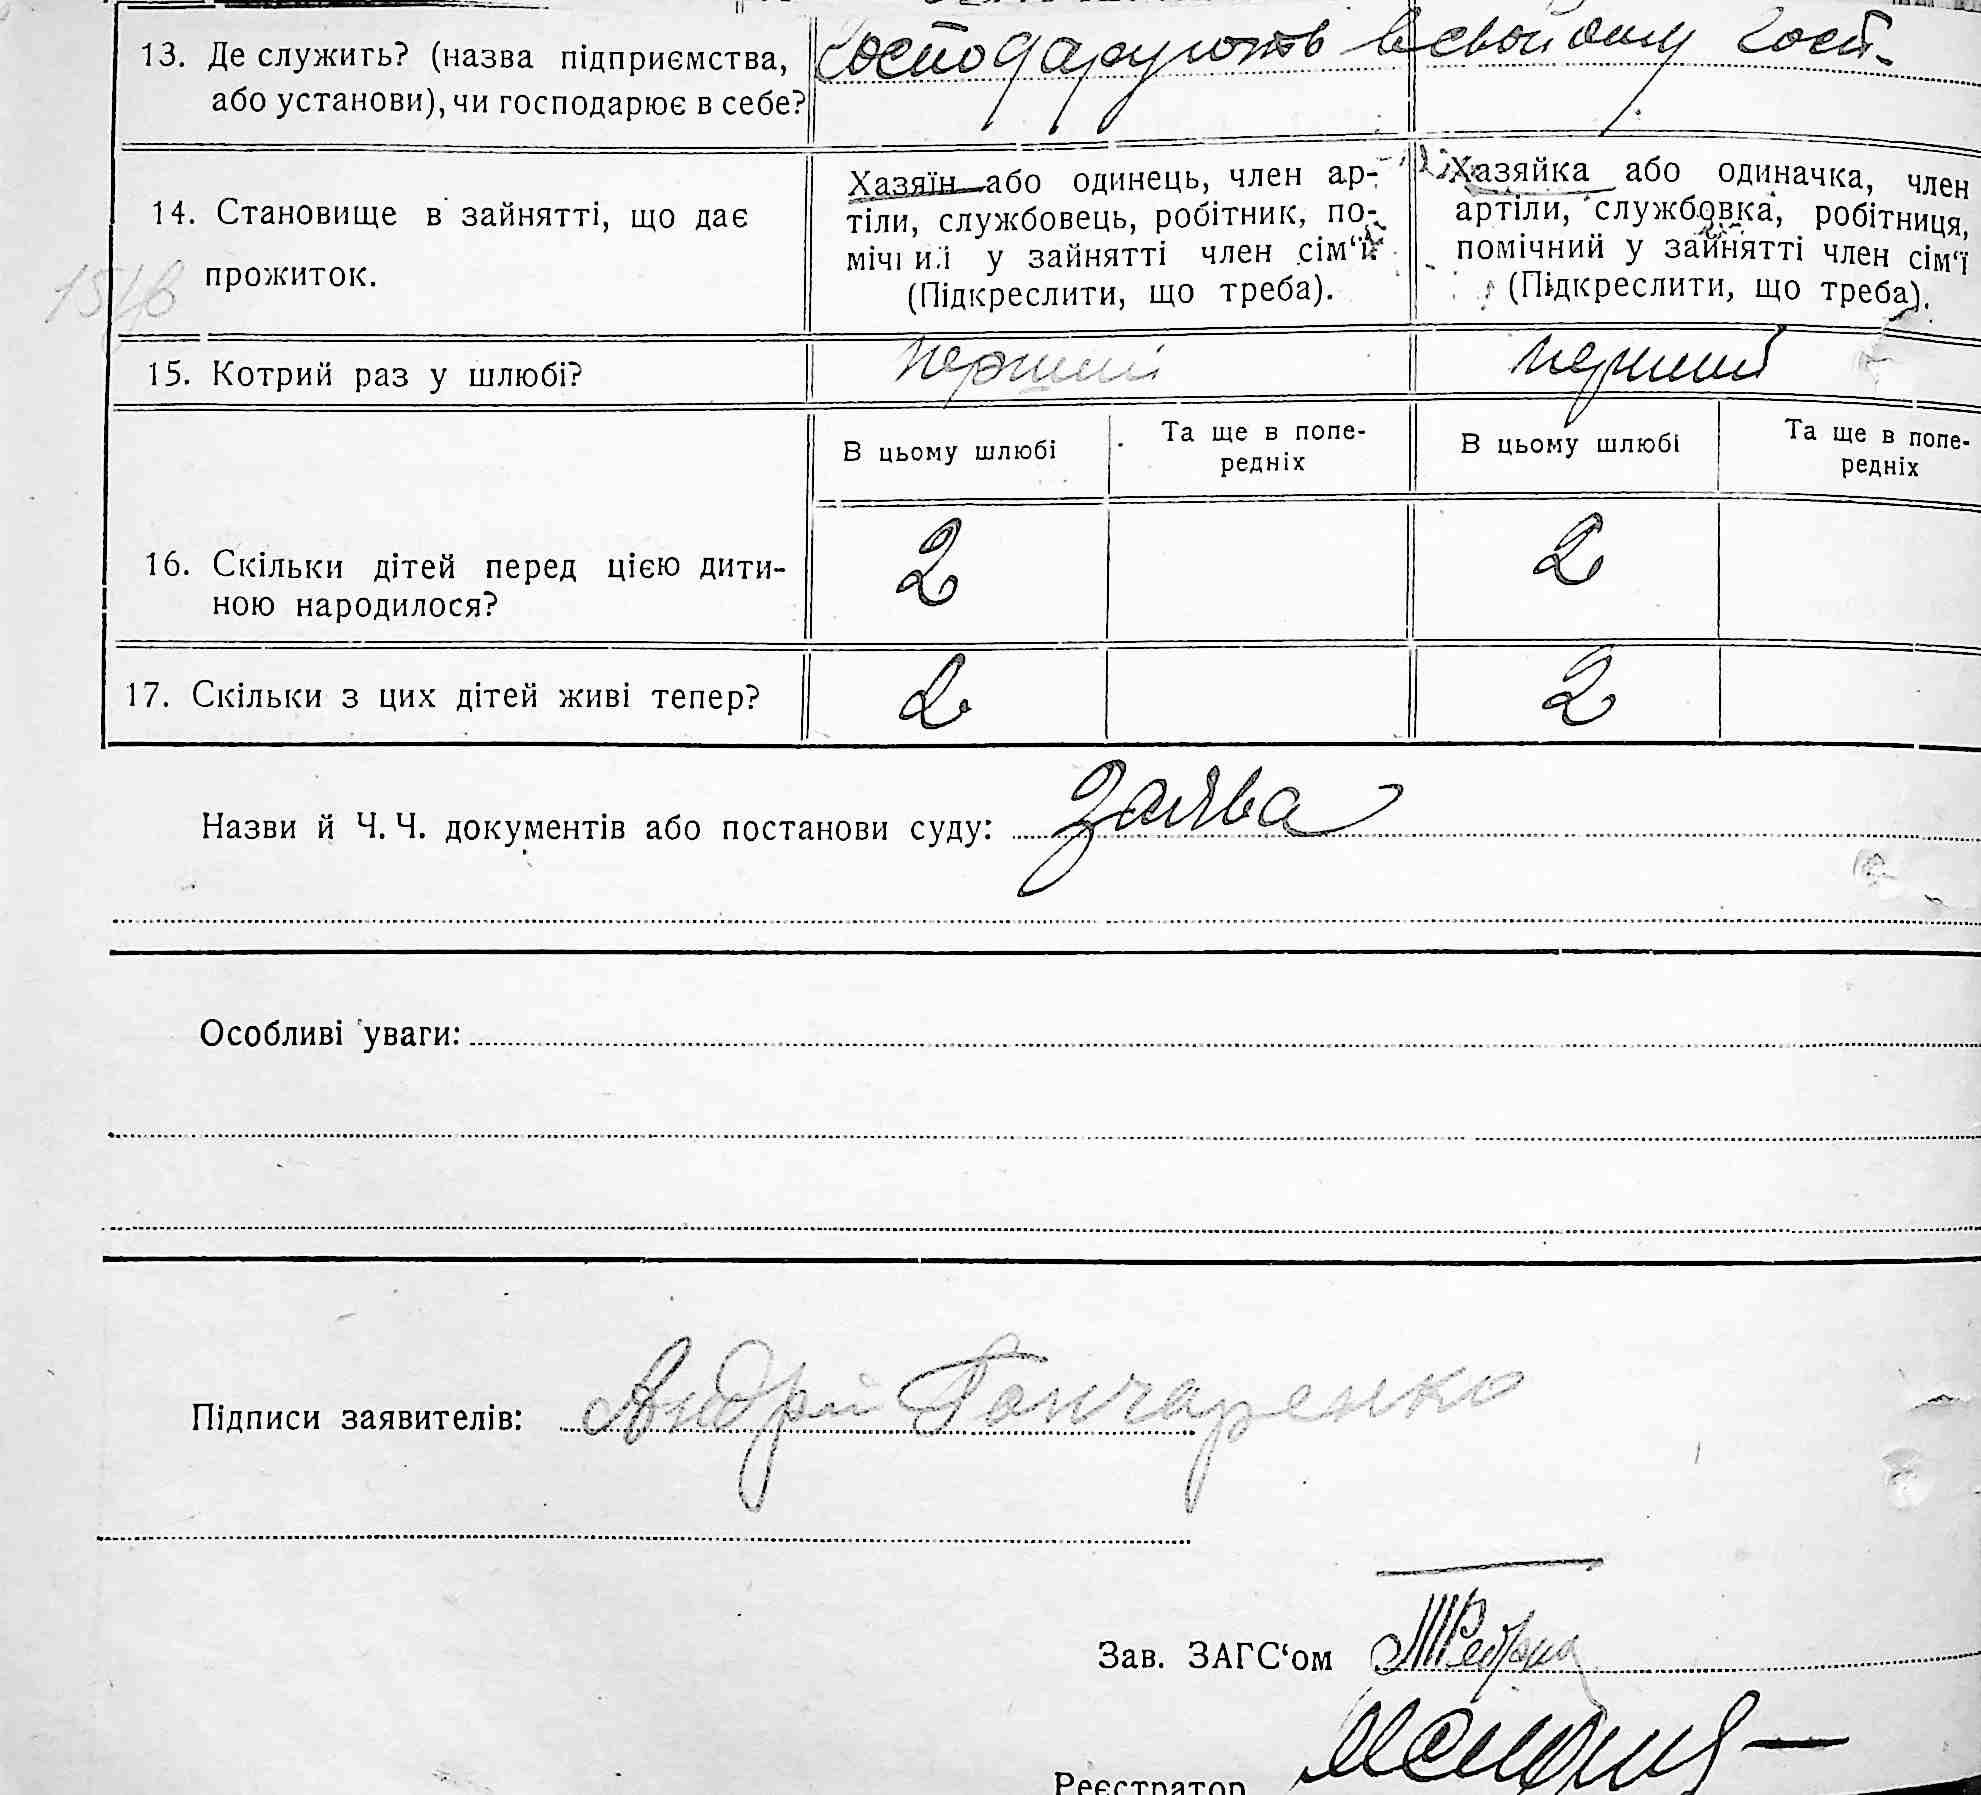 13. Де служить? (назва підприємства, або установи), чи господарює в себе?
господарують в свойому госп.
14. Становище в зайнятті, що дає прожиток.
Хазяїн або одинець, член ар-
тіли, службовець, робітник, по-
мічний у зайнятті член сім‘ї
(Підкреслити, що треба).
Хазяйка або одиначка, член
артіли, службовка, робітниця,
помічний у зайнятті член сім‘ї
(Підкреслити, що треба).
15. Котрий раз у шлюбі?
перший
перший
В цьому шлюбі
Та ще в попе-
редніх
В цьому шлюбі
Та ще в попе-
редніх
16. Скільки дітей перед цією дити-
ною народилося?
2
2
17. Скільки з цих дітей живі тепер?
2
2
Назви й Ч. Ч. документів або постанови суду: заява
Особливі уваги:
Підписи заявителів: Андрій Гончаренко
Зав. ЗАГС‘ом
Реєстратор